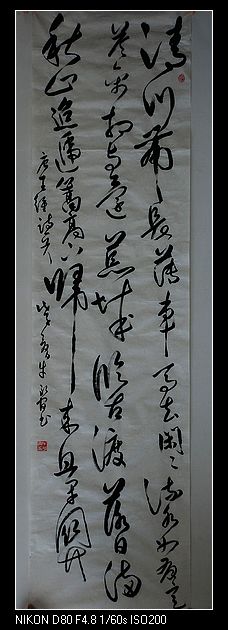 清川帶長薄車馬去閑〻流水如有意
暮禽相與還荒城臨古渡落日滿
秋山迢遞嵩高下歸來且閉關
唐王維詩
NIKON D80 F4.8 1/60s ISO200